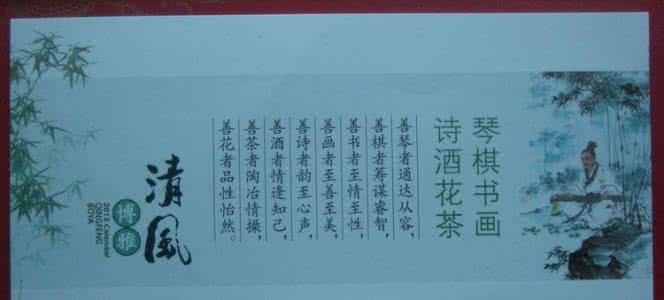 琴棋书画
诗酒花茶
善琴者通达从容，
善棋者筹谋睿智，
善书者至情至性，
善画者至善至美，
善诗者韵至心声，
善酒者情逢知己，
善茶者陶冶情操，
善花者品性怡然。
清風
博雅
2012 Calendar
QINGFENG
BOYA